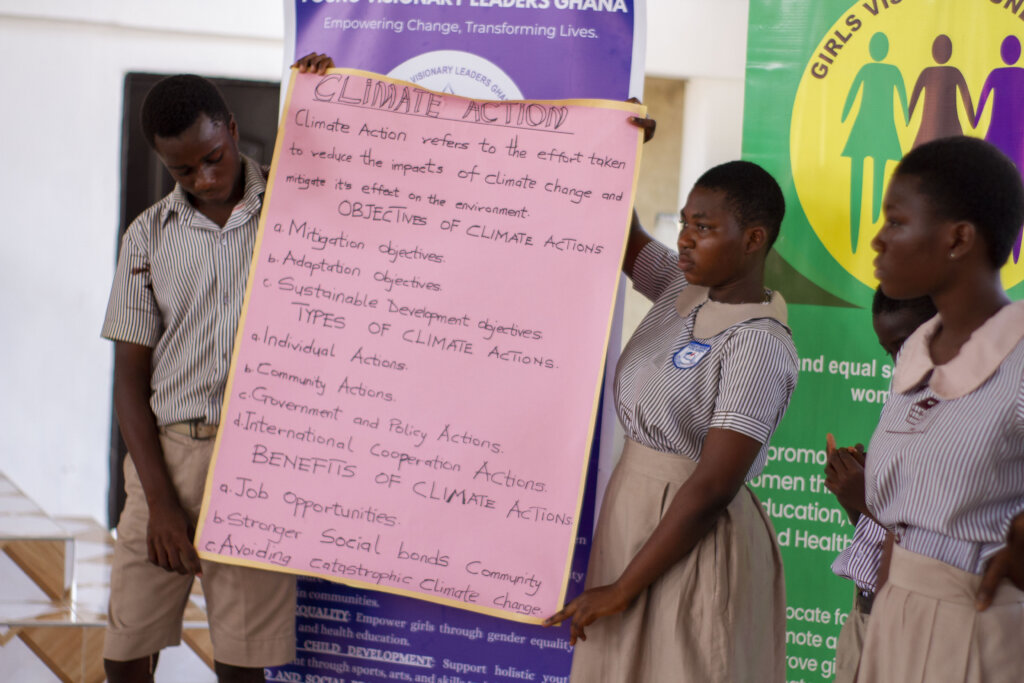 YOUNG VISIONARY LEADERS GHANA
Empowering Change, Transforming Lives.
VISIONARY LEADERS GHANA
CLIMATE ACTION
Climate Action refers to the effort taken
to reduce the impacts of climate change and
mitigate it's effect on the environment.
OBJECTIVES OF CLIMATE ACTIONS
a. Mitigation objectives.
b. Adaptation objectives.
c. Sustainable Development objectives.
TYPES OF CLIMATE ACTIONS.
a. Individual Actions.
b. Community Actions.
c. Government and Policy Actions.
d. International Cooperation Actions.
BENEFITS OF CLIMATE ACTIONS
a. Job Opportunities.
b. Stronger Social bonds Community
c. Avoiding catastrophic Climate Change.
in communities.
EQUALITY: Empower girls through gender equality
and health education.
CHILD DEVELOPMENT: Support holistic
through sports, arts, and
AND
GIRLS
and equal
education,
and Health